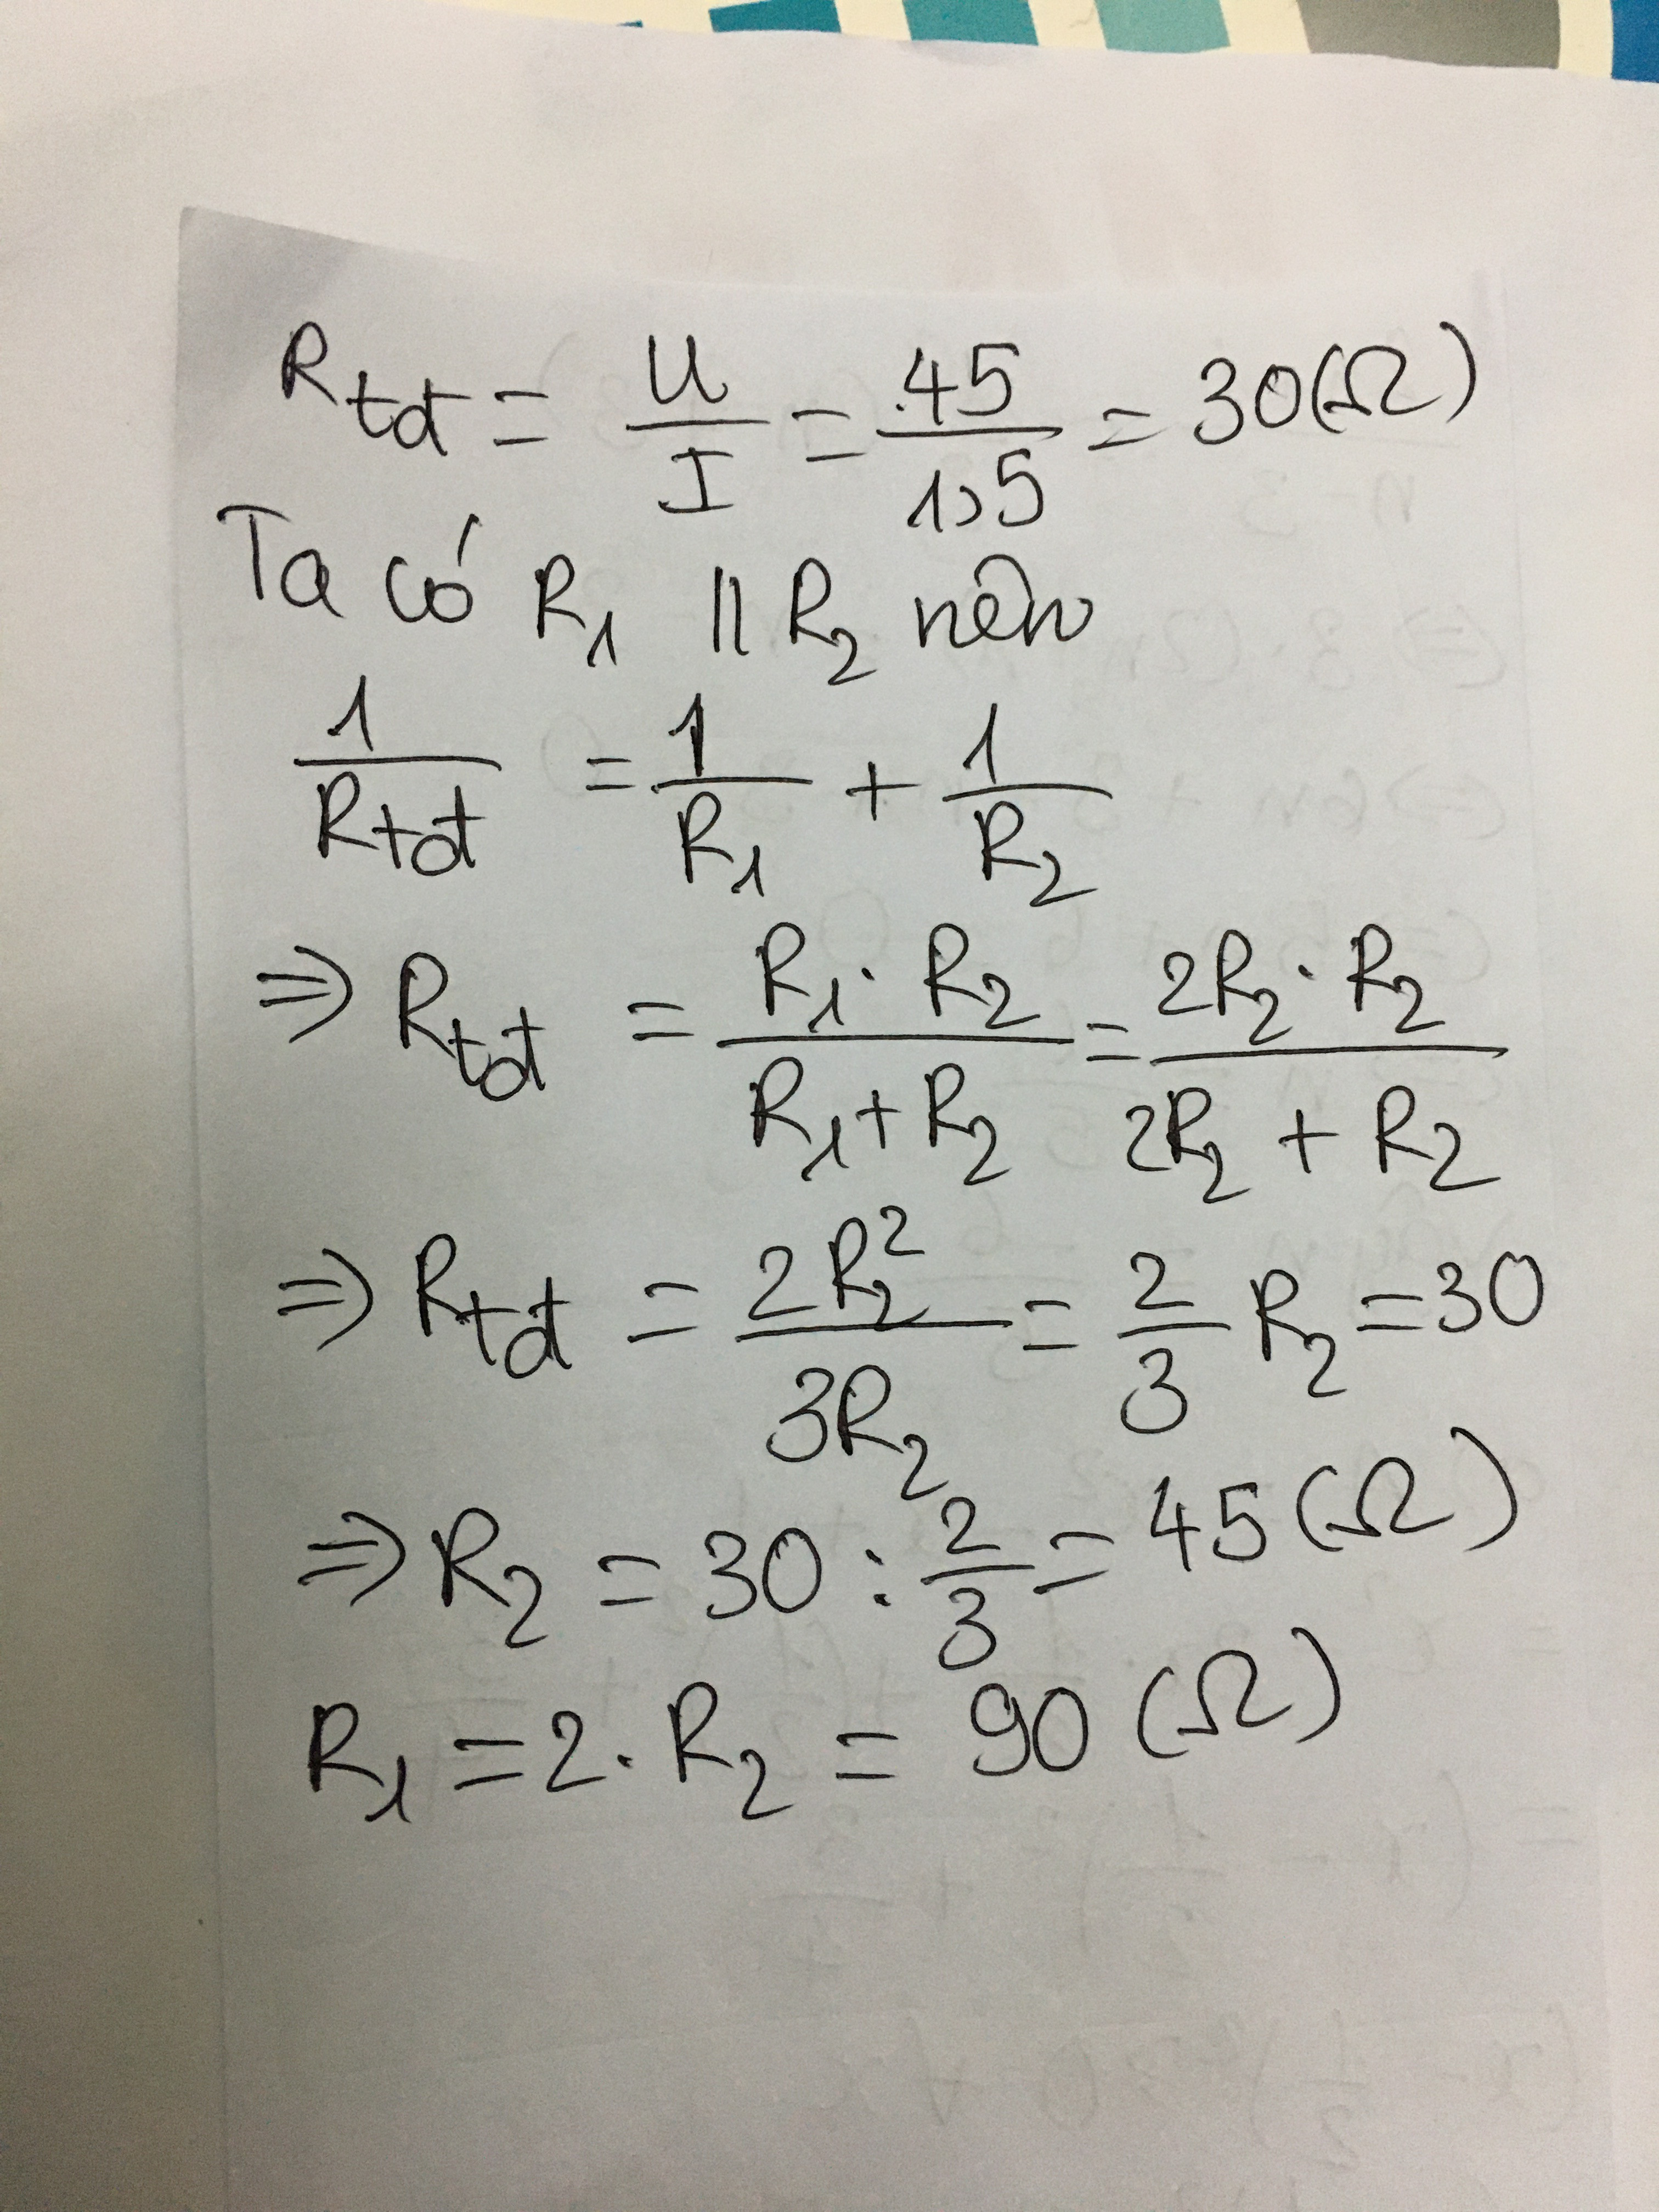 Rtđ = U/I = 45/1,5 = 30(Ω)
Ta có R₁ || R₂ nên
1/Rtđ = 1/R₁ + 1/R₂
⇒ Rtđ = R₁·R₂/(R₁+R₂) = 2R₂·R₂/(2R₂ + R₂)
⇒ Rtđ = 2R₂²/3R₂ = 2/3 R₂ = 30
⇒ R₂ = 30 : 2/3 = 45(Ω)
R₁ = 2·R₂ = 90 (Ω)